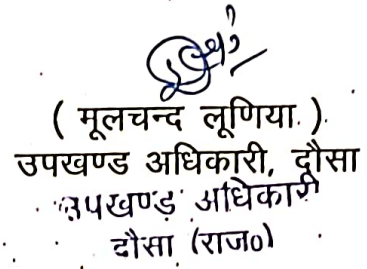 ( मूलचन्द लूणिया. )
उपखण्ड अधिकारी, दौसा
उपखण्ड़ अधिकारी
दौसा (राज०)